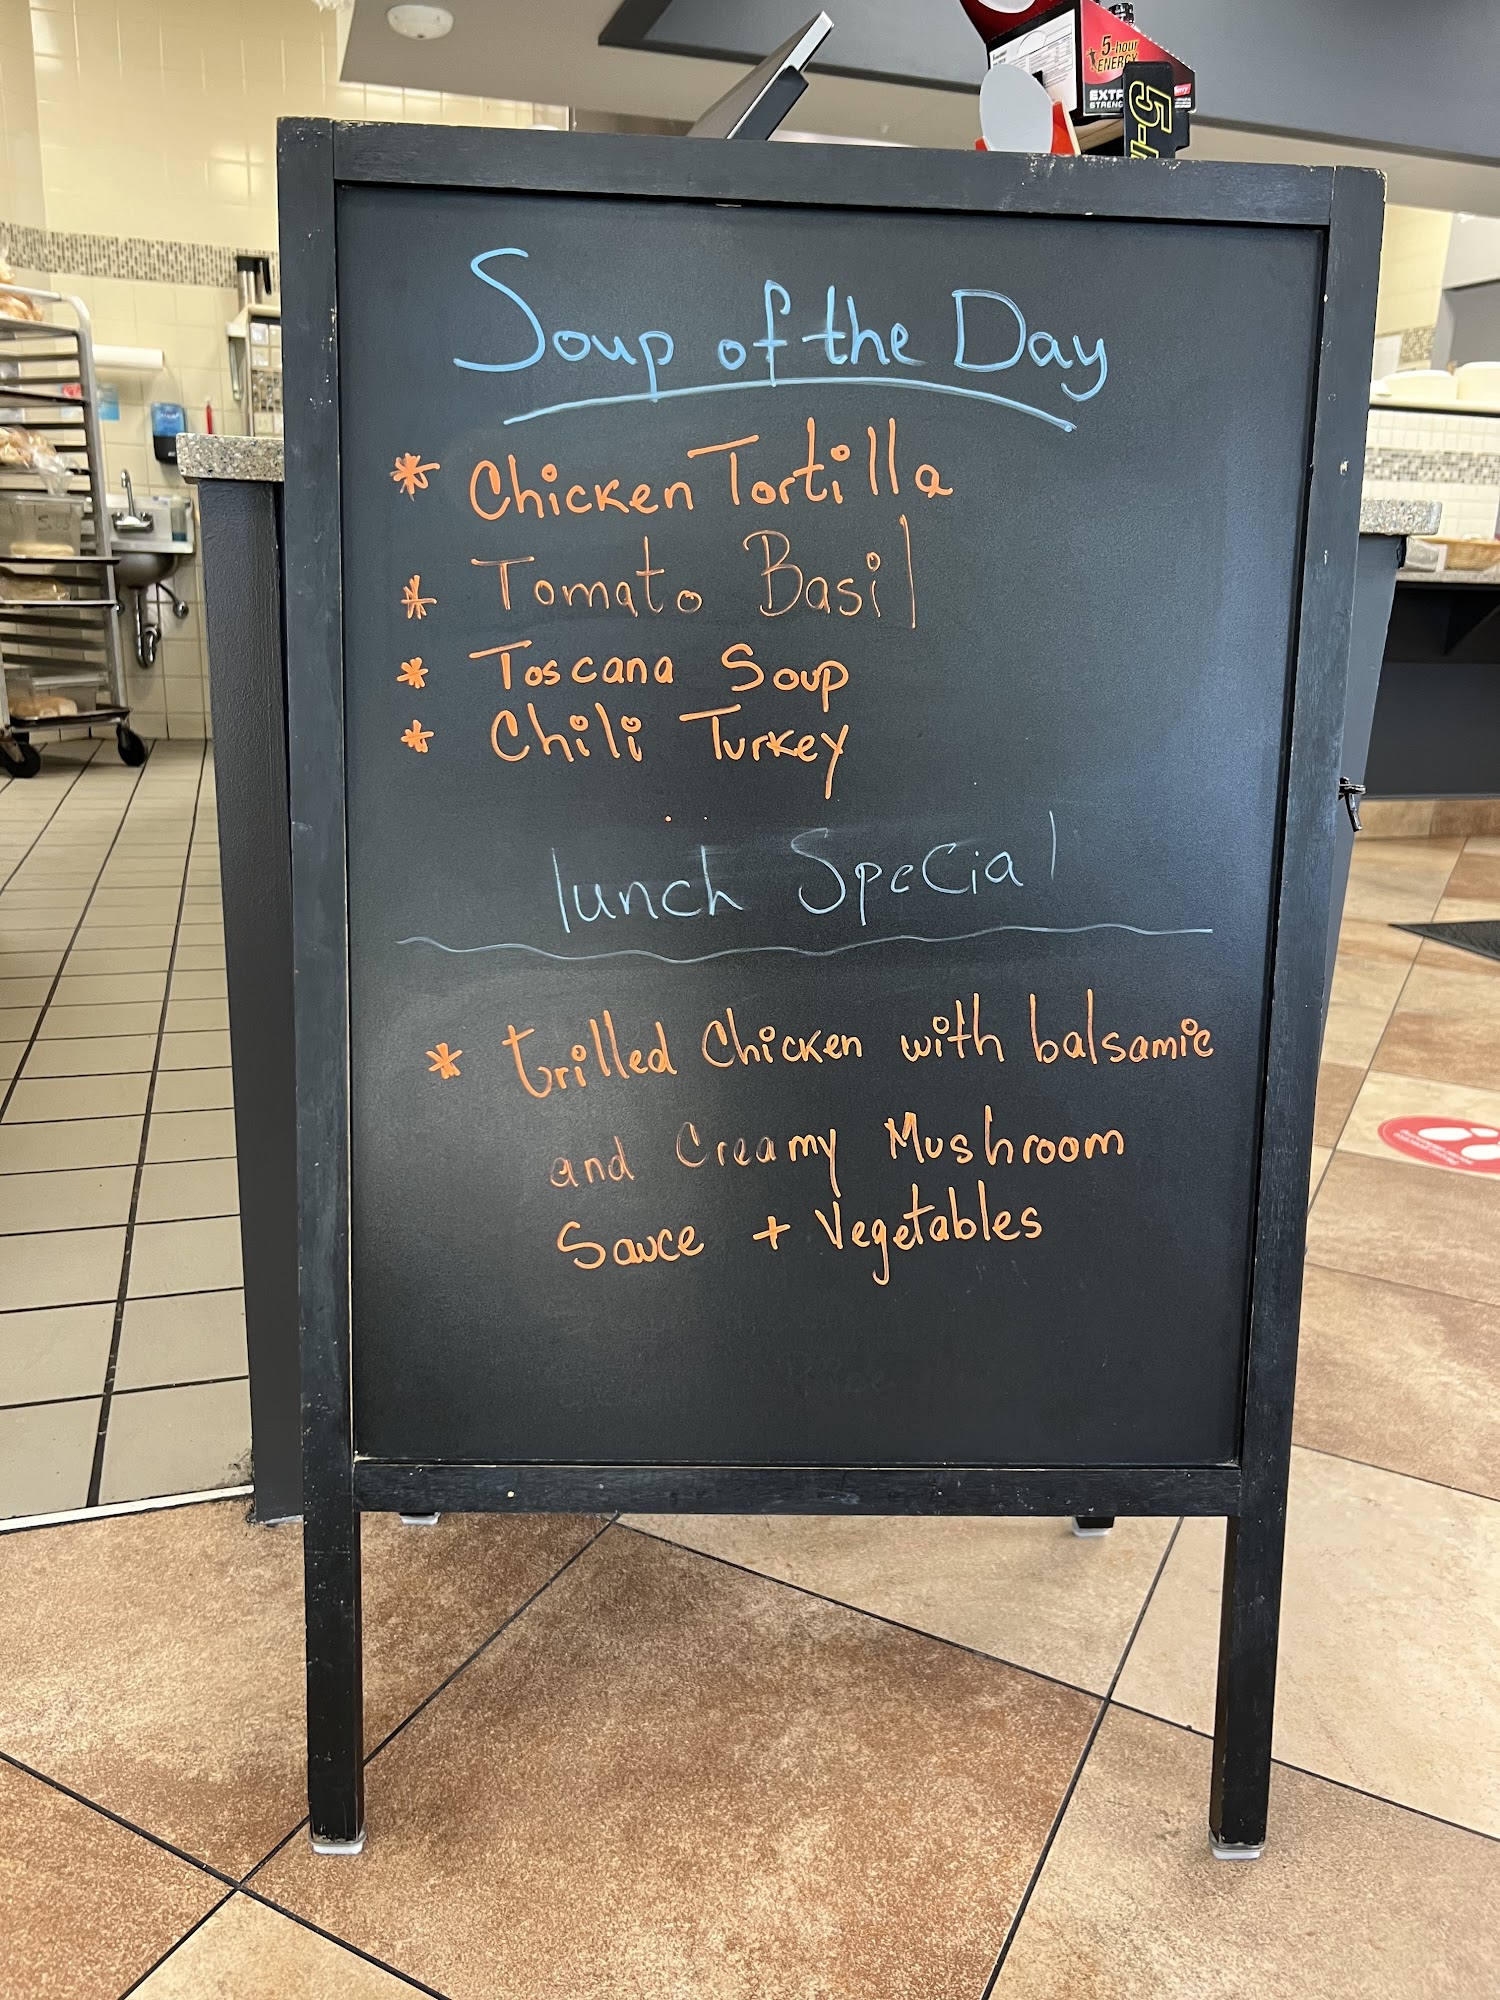 5-hour
ENERGY
EXTRA
STRENGTH
5-
Soup of the Day
* Chicken Tortilla
* Tomato Basil
* Toscana Soup
* Chili Turkey
lunch Special
* Grilled Chicken with balsamic
and Creamy Mushroom
Sauce + Vegetables